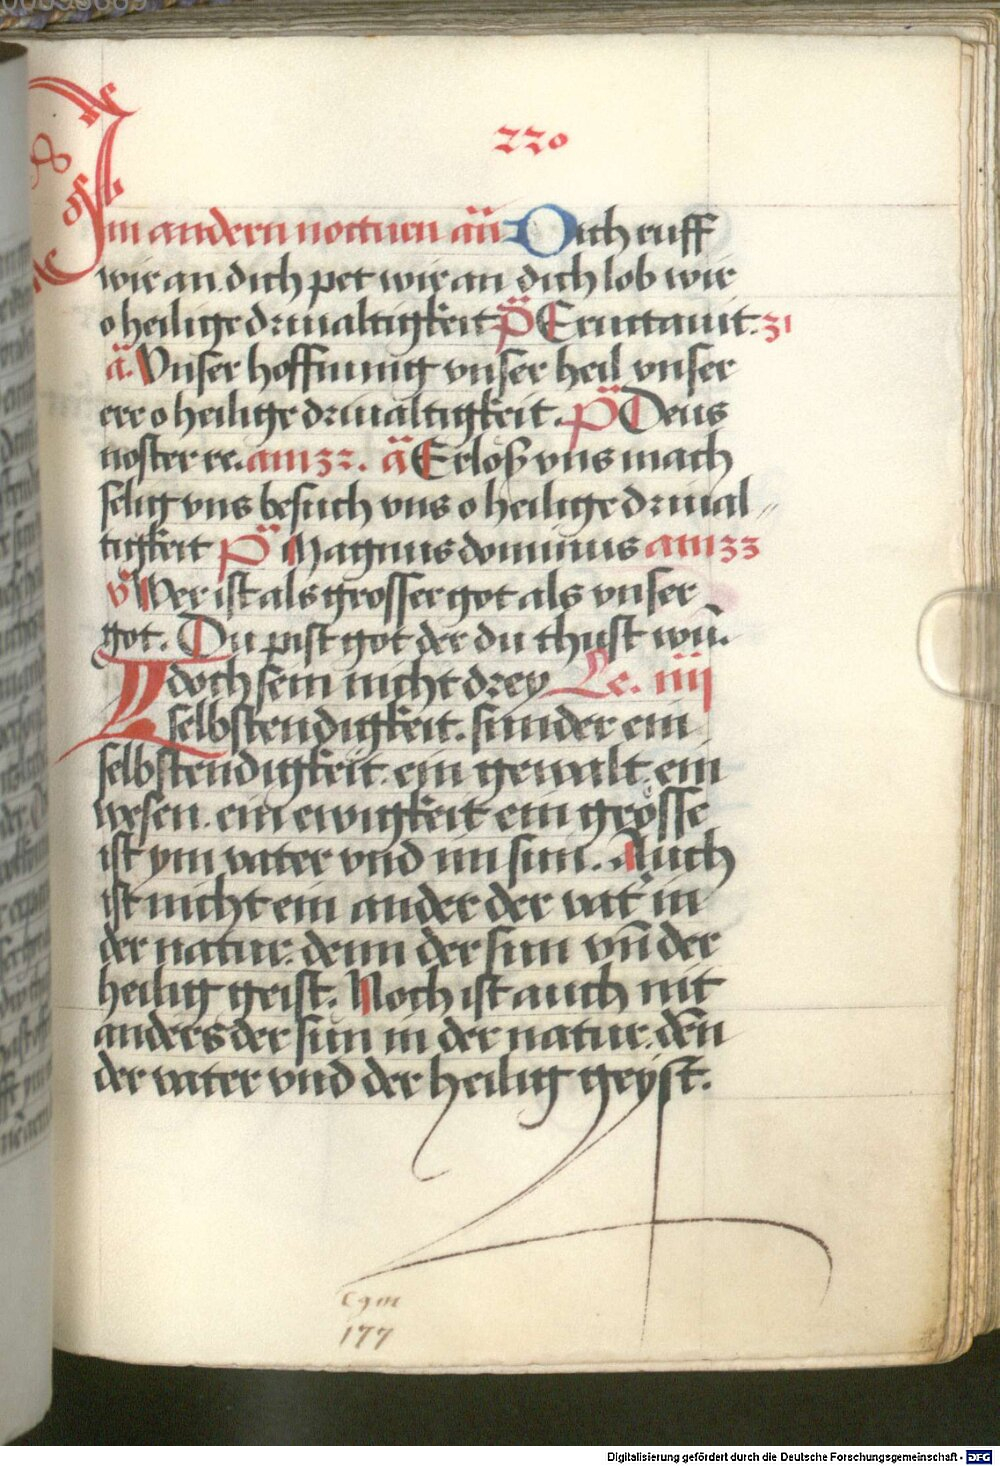 220
Im andern nocturn añ Dich ruff
wir an. dich pet wir an dich lob wir
o heilige driualtigkeit p̈ Eructauit. 31
ä. Vnser hoffnung vnser heil vnser
ere o heilige driualtigkeit. p̈ Deus
noster re. am 32. ä Erlöß vns mach
selig vns besuch vns o heilige driual〃
tigkeit p̈ Magnus dominus am 33
v̈ Wer ist als grosser got als vnser
got. Du pist got der du thust wū.
Idoch sein nicht drey Le. iiii
selbstendigkeit. sunder ein
selbstendigkeit. ein gewalt. ein
wesen. ein ewigkeit ein grösse
ist ym vater vnd im sun. Auch
ist nicht ein ander der vat' in
der natur. denn der sun vn̄ der
heilig geist. Noch ist auch nit
anders der sun in der natur. den̄
der vater vnd der heilig geyst.
Cgm
177
Digitalisierung gefördert durch die Deutsche Forschungsgemeinschaft - DFG